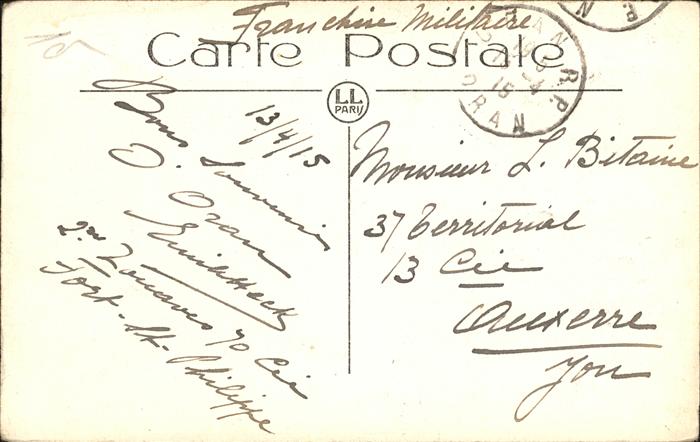 Franchise Militaire
Carte Postale
ORAN R.P.
15
ORAN
R.P.
LL
PARIS
13/4/15
Bons Souvenirs
d'Oran
2me Zouaves 70 Cie
Fort-St-Philippe
Monsieur L. Bitaine
37 Territorial
13 Cie
Auxerre
Yon